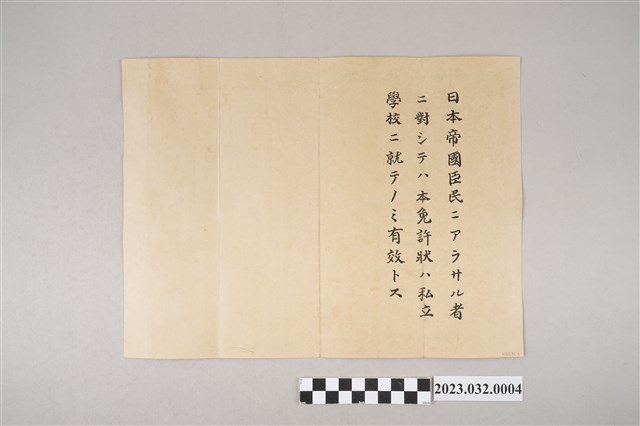 日本帝國臣民ニアラサル者
ニ對シテハ本免許狀ハ私立
學校ニ就テノミ有效トス
2023.032.0004